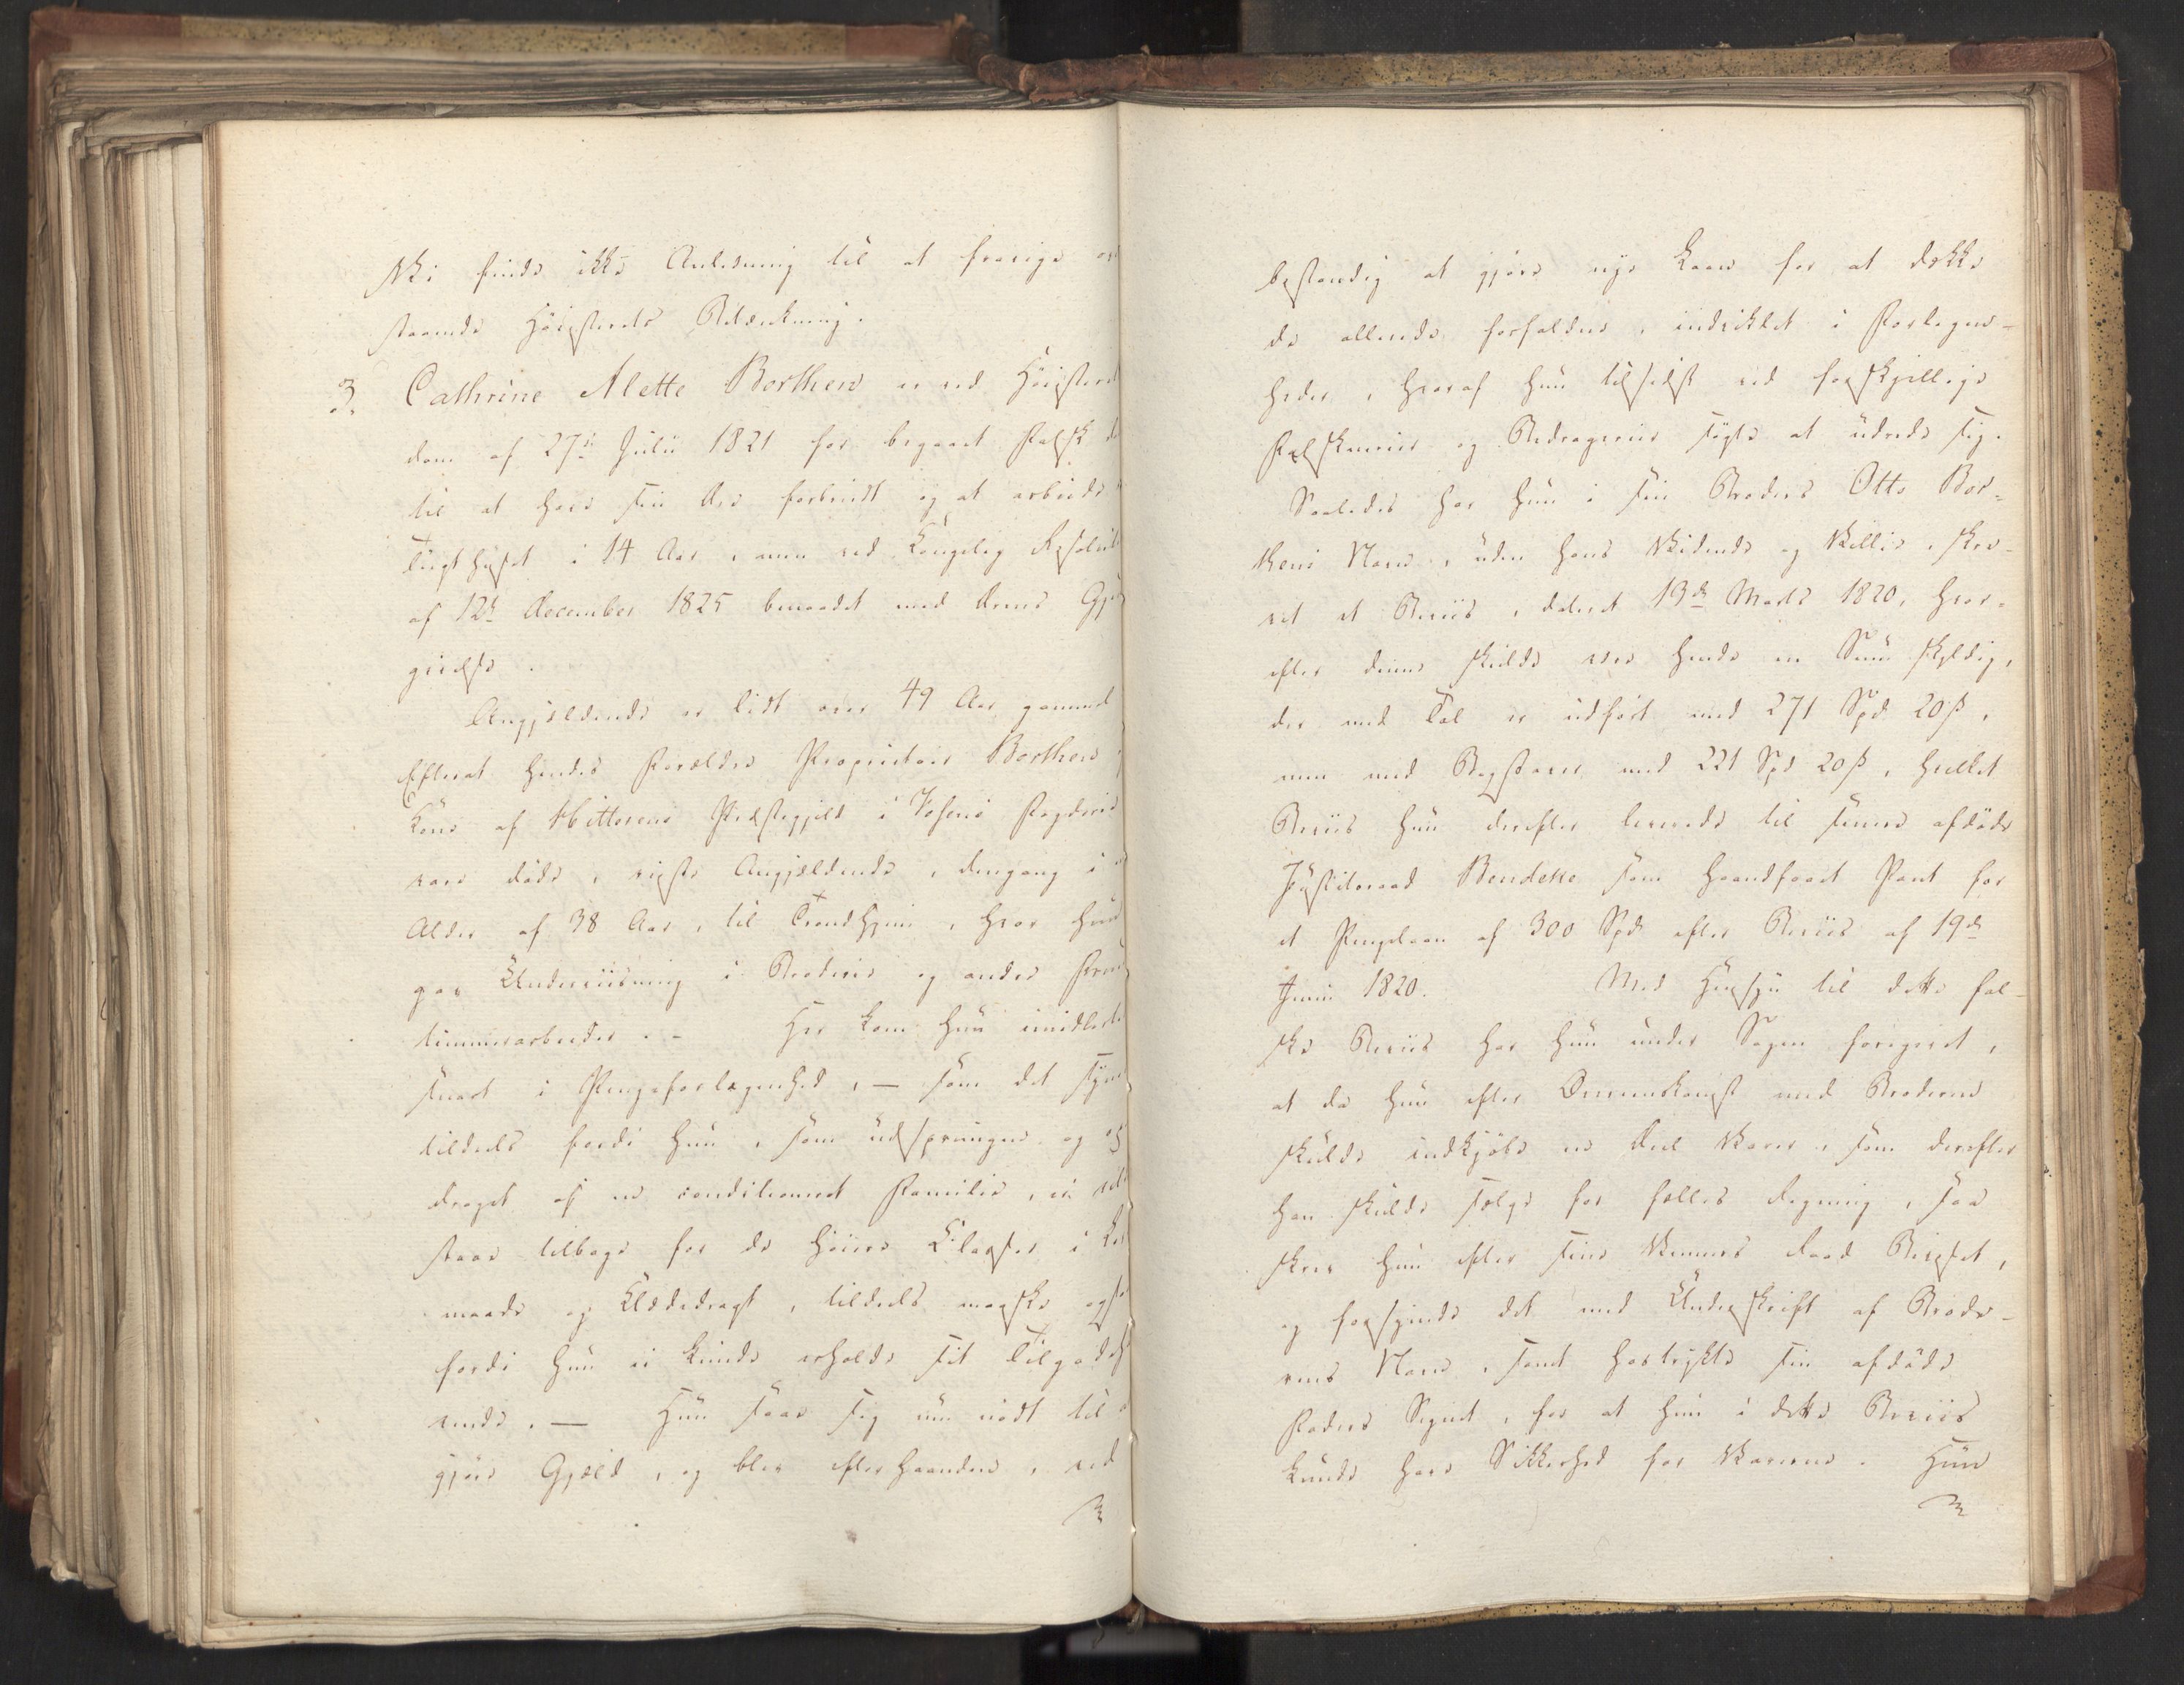 Vi finde ikke Anledning til at fravige oven
staaende Høiesterets Betænkning.
3. Cathrine Alette Borthen er ved Høiesterets
dom af 27de Julii 1821 for begaaet Falsk dømt
til at have sin Ære forbrudt og at arbeide i
Tugthuset i 14 Aar, men ved Kongelig Resolution
af 12te December 1825 benaadet med Ærens Gjen
givelse.
Angjældende er lidt over 49 Aar gammel
Efterat hendes Forældre Proprietair Borthen og
Kone af Hitterens Præstegjeld i Fosens Fogderie
vare døde, reiste Angjældende, dengang i en
Alder af 38 Aar, til Trondhjem, hvor hun
gav Underviisning i Broderie og andre Fruen
timmerarbeider. - Her kom hun imidlertid
snart i Pengeforlegenhed, — som det synes
tildeels fordi hun, som udsprungen og op
draget af en conditioneret Familie, ei vilde
staae tilbage for de høiere Classer i Leve
maade og Klædedragt, tildeels maaske ogsaa
fordi hun ei kunde erholde sit Tilgodeha
vende. — Hun saae sig nu nødt til at
gjøre Gjæld, og blev efterhaanden, ved
bestandig at gjøre nye Laan for at dække
de allerede forfaldne, indviklet i Forlegen-
heder, hvoraf hun tilsidst ved forskjellige
Falsknerier og Bedragerier søgte at udrede sig.
Saaledes har hun i sin Broders Otto Bor-
thens Navn, uden hans Vidende og Villie, skre-
vet et Beviis, dateret 13de Marts 1820, hvor-
efter denne skulde være hende en Sum skyldig,
der med Tal er udført med 271 Spd. 20 ß,
men med Bogstaver med 221 Spd 20 ß, hvilket
Beviis hun derefter leverede til senere afdøde
Justitsraad Bendeke som haandfaaet Pant for
et Pengelaan af 300 Spd. efter Beviis af 19de
Junii 1820. Med Hensyn til dette fal-
ske Beviis har hun under Sagen foregivet,
at da hun efter Overeenskomst med Broderen
skulde indkjøbe en Deel Varer, som derefter
han skulde sælge for fælles Regning, saa
skrev hun efter sine Venners Raad Beviset,
og forsynede det med Underskrift af Brode-
rens Navn, samt hostrykte sin afdøde
Faders Signet, for at hun i dette Beviis
kunde have Sikkerhed for Varerne. Hun